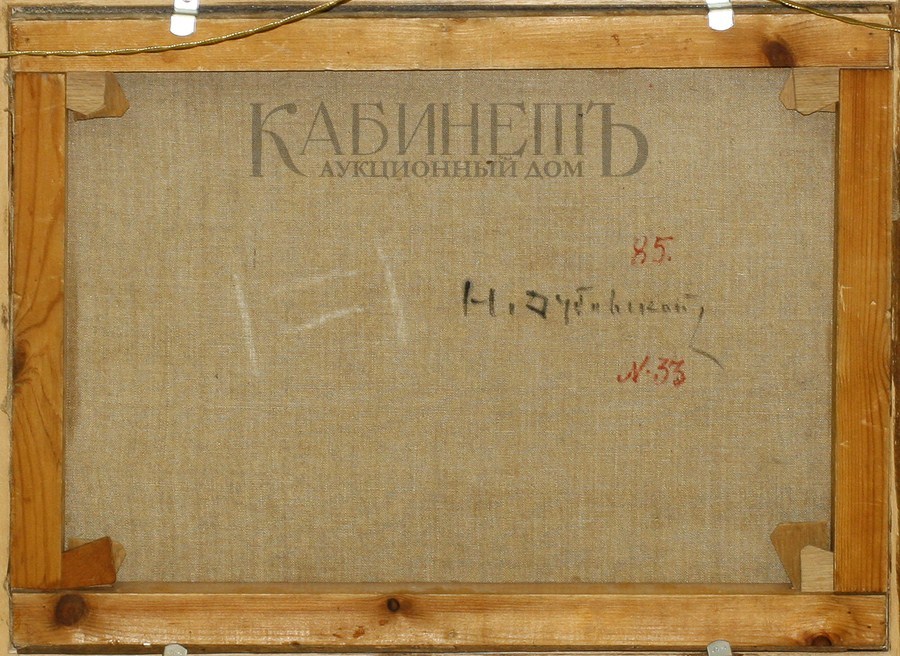 КАБИНЕТЪ
АУКЦИОННЫЙ ДОМ
85.
Н. Дубовской,
N. 33